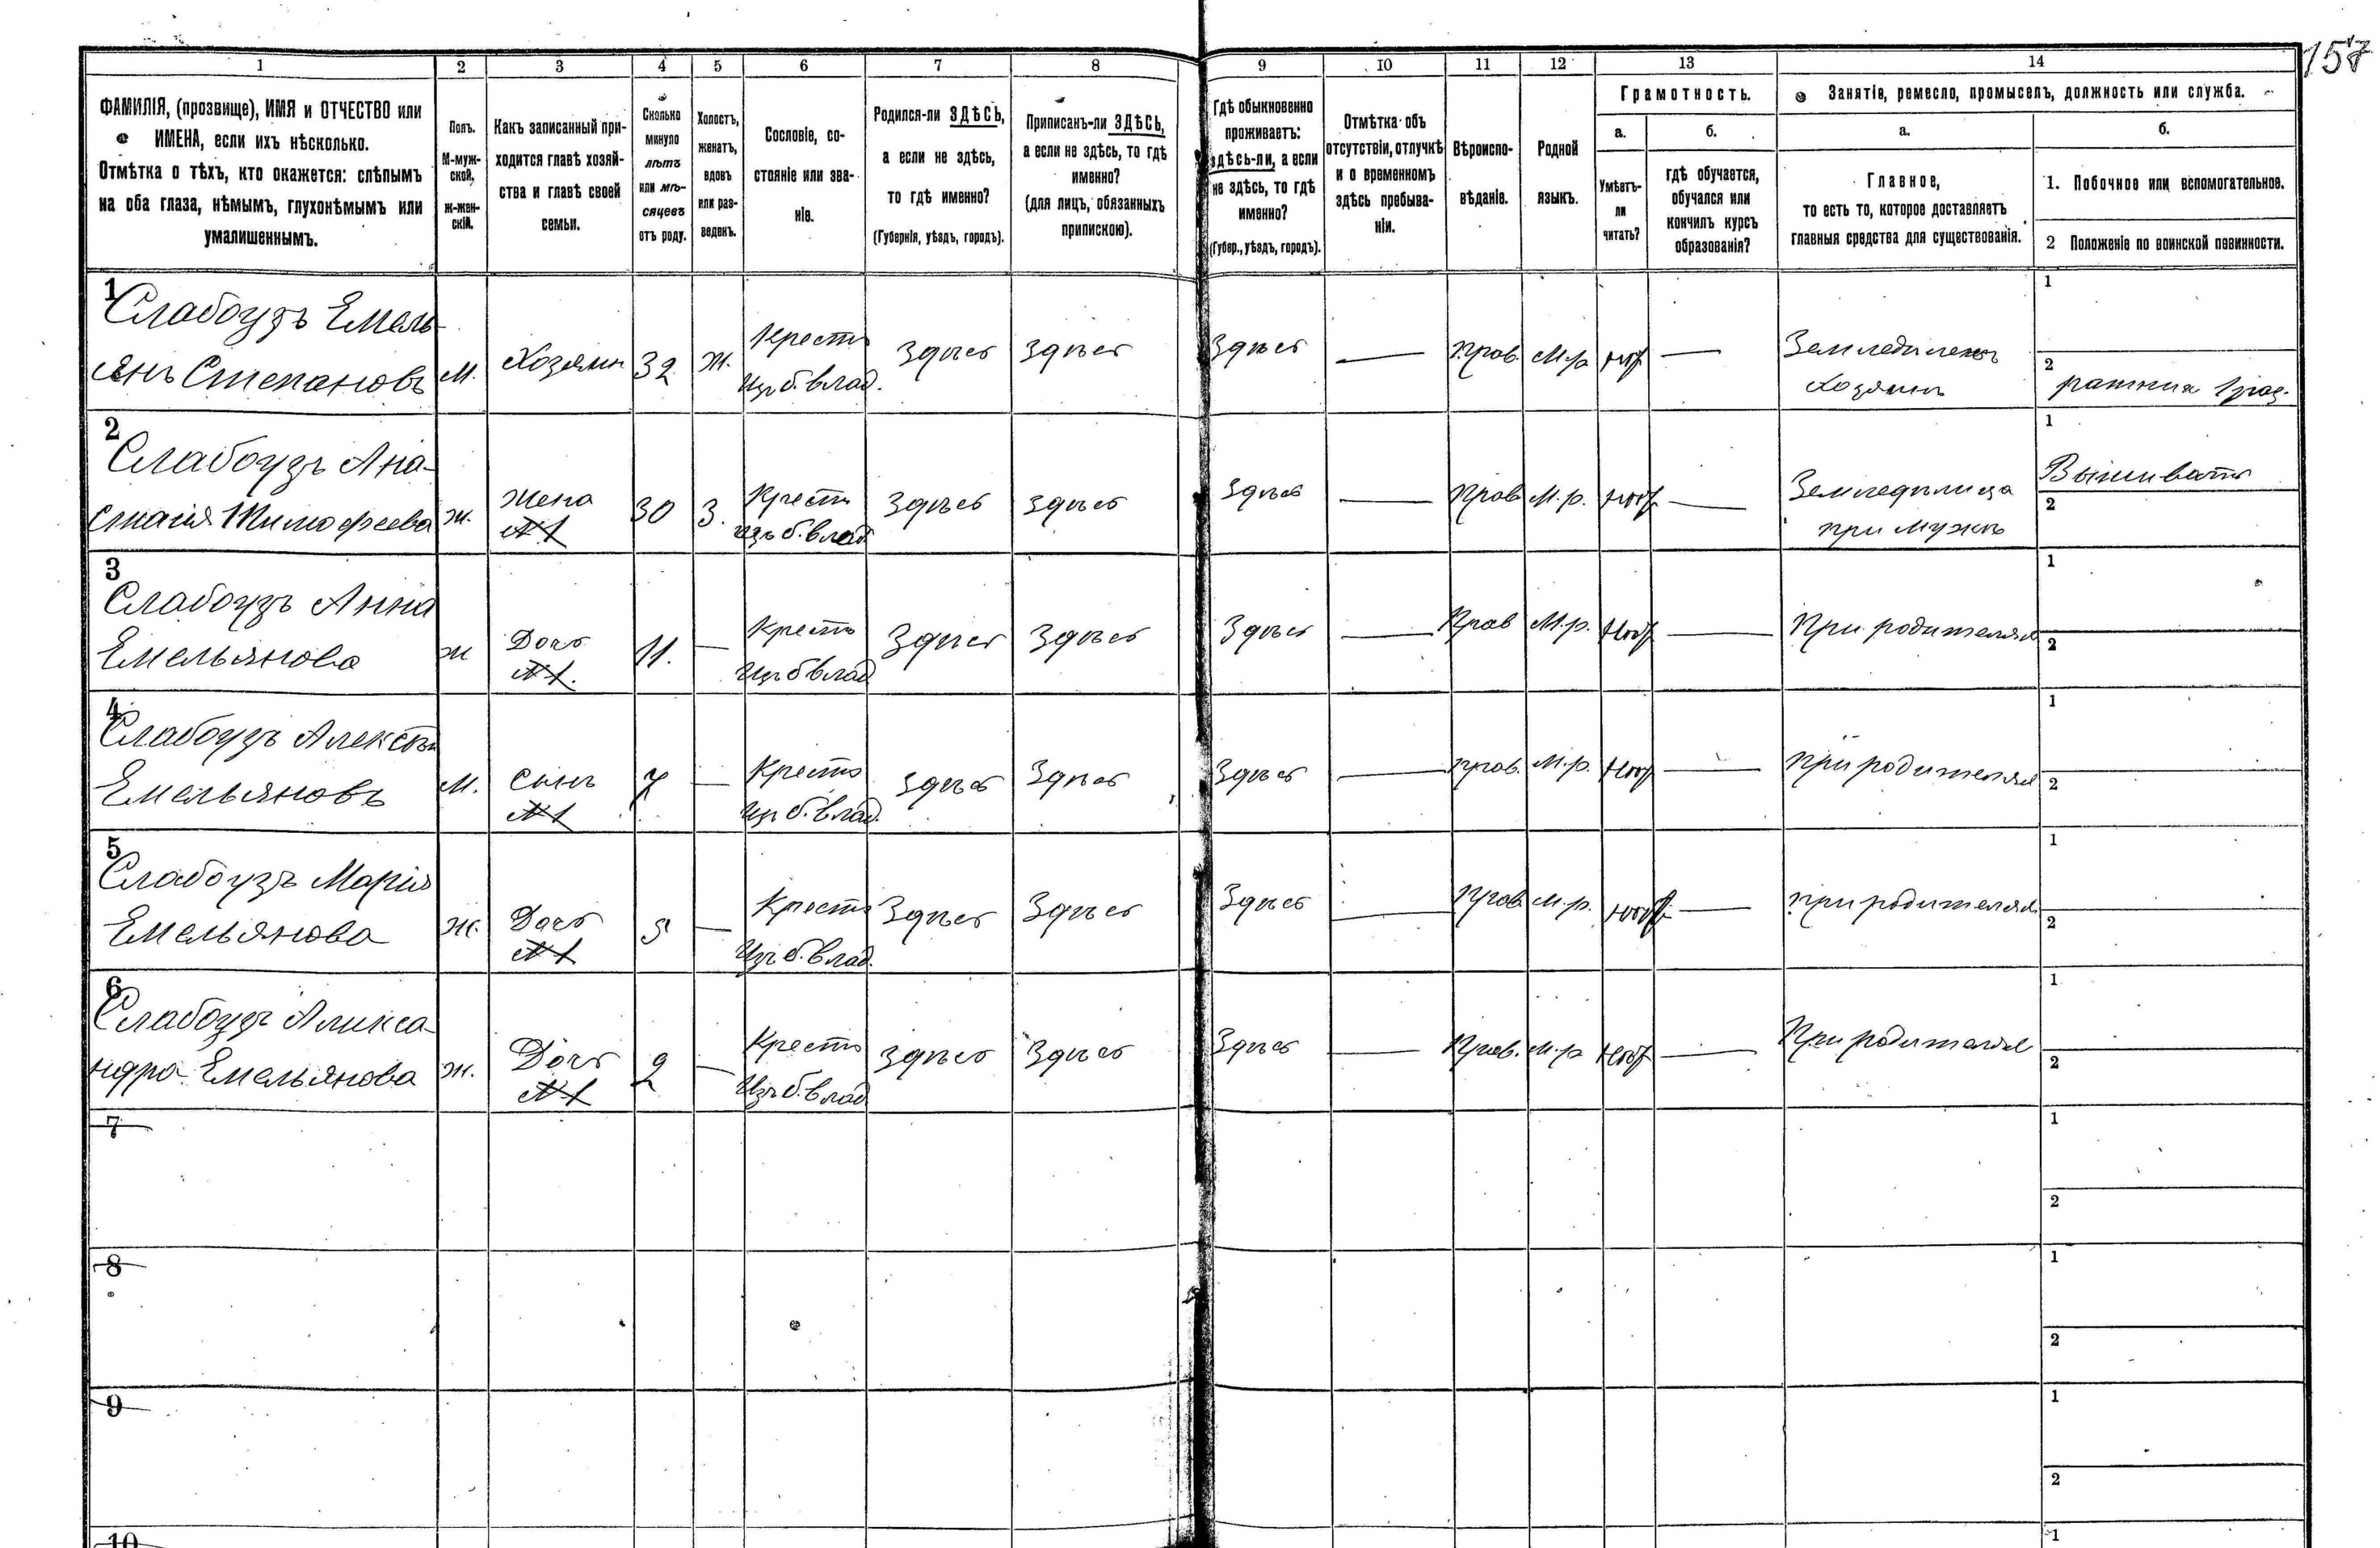 157
1 2 3 4 5 6 7 8 9 10 11 12 13 14
ФАМИЛІЯ, (прозвище), ИМЯ и ОТЧЕСТВО или
ИМЕНА, если ихъ нѣсколько.
Отмѣтка о тѣхъ, кто окажется: слѣпымъ
на оба глаза, нѣмымъ, глухонѣмымъ или
умалишеннымъ.
Полъ.
М-муж-
ской,
ж-жен-
скій.
Какъ записанный при-
ходится главѣ хозяй-
ства и главѣ своей
семьи.
Сколько
минуло
лѣтъ
или мѣ-
сяцевъ
отъ роду.
Холостъ,
женатъ,
вдовъ
или раз-
веденъ.
Сословіе, со-
стояніе или зва-
ніе.
Родился-ли ЗДѢСЬ,
а если не здѣсь,
то гдѣ именно?
(Губернія, уѣздъ, городъ).
Приписанъ-ли ЗДѢСЬ,
а если не здѣсь, то гдѣ
именно?
(для лицъ, обязанныхъ
припискою).
Гдѣ обыкновенно
проживаетъ:
здѣсь-ли, а если
не здѣсь, то гдѣ
именно?
(Губер., уѣздъ, городъ).
Отмѣтка объ
отсутствіи, отлучкѣ
и о временномъ
здѣсь пребыва-
ніи.
Вѣроиспо-
вѣданіе.
Родной
языкъ.
Грамотность.
а. б.
Умѣетъ-
ли
читать?
гдѣ обучается,
обучался или
кончилъ курсъ
образованія?
Занятіе, ремесло, промыселъ, должность или служба.
а. б.
Главное,
то есть то, которое доставляетъ
главныя средства для существованія.
1. Побочное или вспомогательное.
2 Положеніе по воинской повинности.
1
Слабоузъ Емель-
янъ Степановъ М. Хозяинъ 32 Ж. Крестъ
изъ б. влад. Здѣсь Здѣсь Здѣсь — Прав. М.р. нѣтъ — Земледѣлецъ
хозяинъ
1
2
ратник 1 раз.
2
Слабоузъ Ана-
стасія Тимофеева ж. жена
№1 30 З. Крестъ
изъ б. влад. Здѣсь Здѣсь Здѣсь — Прав М.р. нѣтъ — Земледѣлица
при мужѣ
1
Вышиватъ
2
3
Слабоузъ Анна
Емельянова ж Дочь
№1. 11. — Крестъ
изъ б влад Здѣсь Здѣсь Здѣсь — Прав М.р. нѣтъ — При родителях
1
2
4
Слабоузъ Алексѣй
Емельяновъ М. сынъ
№1 7 — Крестъ
изъ б. влад. Здѣсь Здѣсь Здѣсь — Прав. М.р. нѣтъ — При родителях
1
2
5
Слабоузъ Марія
Емельянова ж. Дочь
№1 5 — Крестъ
Изъ б. влад. Здѣсь Здѣсь Здѣсь — Прав М.р. нѣтъ — При родителях
1
2
6
Слабоузъ Алекса-
ндра Емельянова ж. Дочь
№1 2 — Крестъ
Изъ б. влад Здѣсь Здѣсь Здѣсь — Прав. М.р нѣтъ — При родителях
1
2
7
1
2
8
1
2
9
1
2
10
1